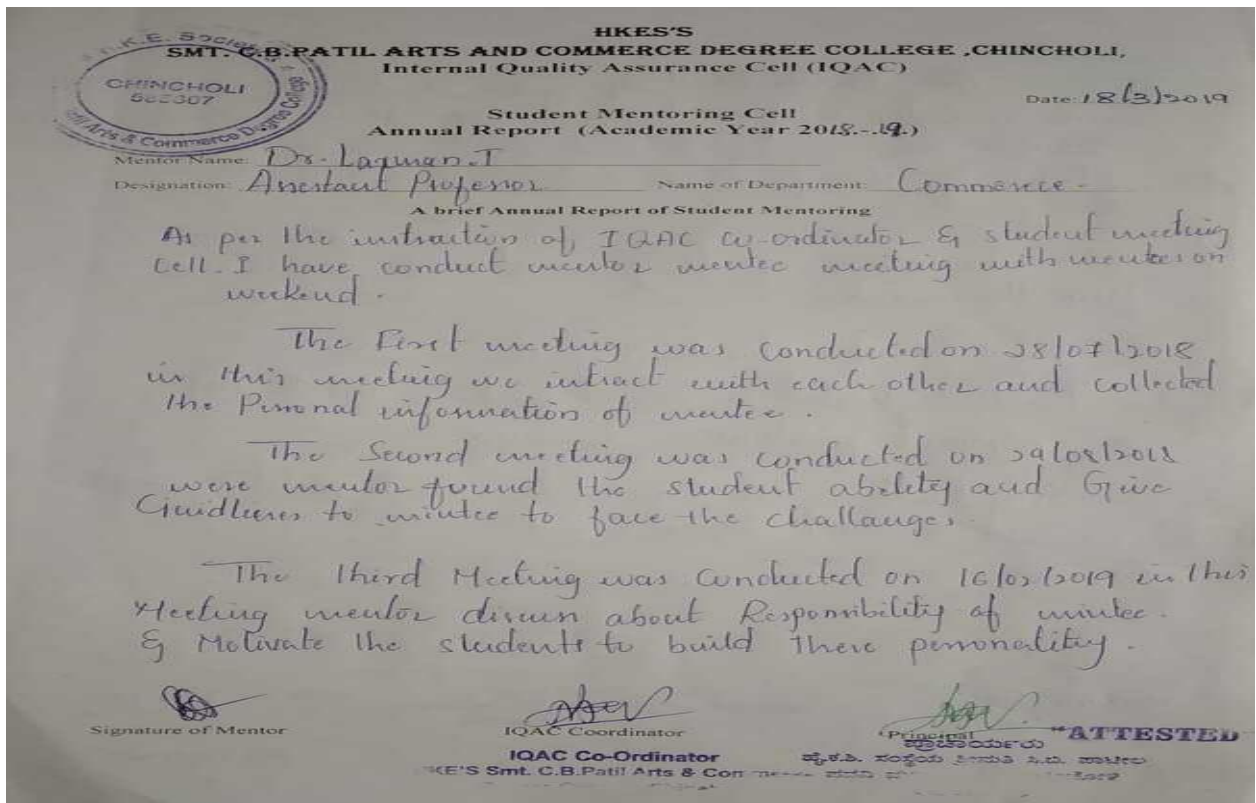 HKES'S
SMT. C.B.PATIL ARTS AND COMMERCE DEGREE COLLEGE ,CHINCHOLI,
Internal Quality Assurance Cell (IQAC)
H.K.E. Society's
CHINCHOLI
585307
Patil Arts & Commerce Degree College
Date: 18/3/2019
Student Mentoring Cell
Annual Report (Academic Year 2018.-.19.)
Mentor Name: Dr. Laxman.T
Designation: Assistant Professor Name of Department: Commerce -
A brief Annual Report of Student Mentoring
As per the instraction of IQAC co-ordinator & student meeting
Cell. I have conduct mentor mentee meeting with mentees on
weekend.
The First meeting was conducted on 28/07/2018
in this meeting we intract with each other and collected
the Personal information of mentee.
The Second meeting was conducted on 29/08/2018
were mentor found the student ability and Give
Guidlines to mintee to face the challanges.
The third Meeting was conducted on 16/02/2019 in this
Meeting mentor discuss about Responsibility of mintee.
& Motivate the students to build there personality.
Signature of Mentor IQAC Coordinator Principal "ATTESTED
IQAC Co-Ordinator ಪ್ರಾಚಾರ್ಯರು
KE'S Smt. C.B.Patil Arts & Com